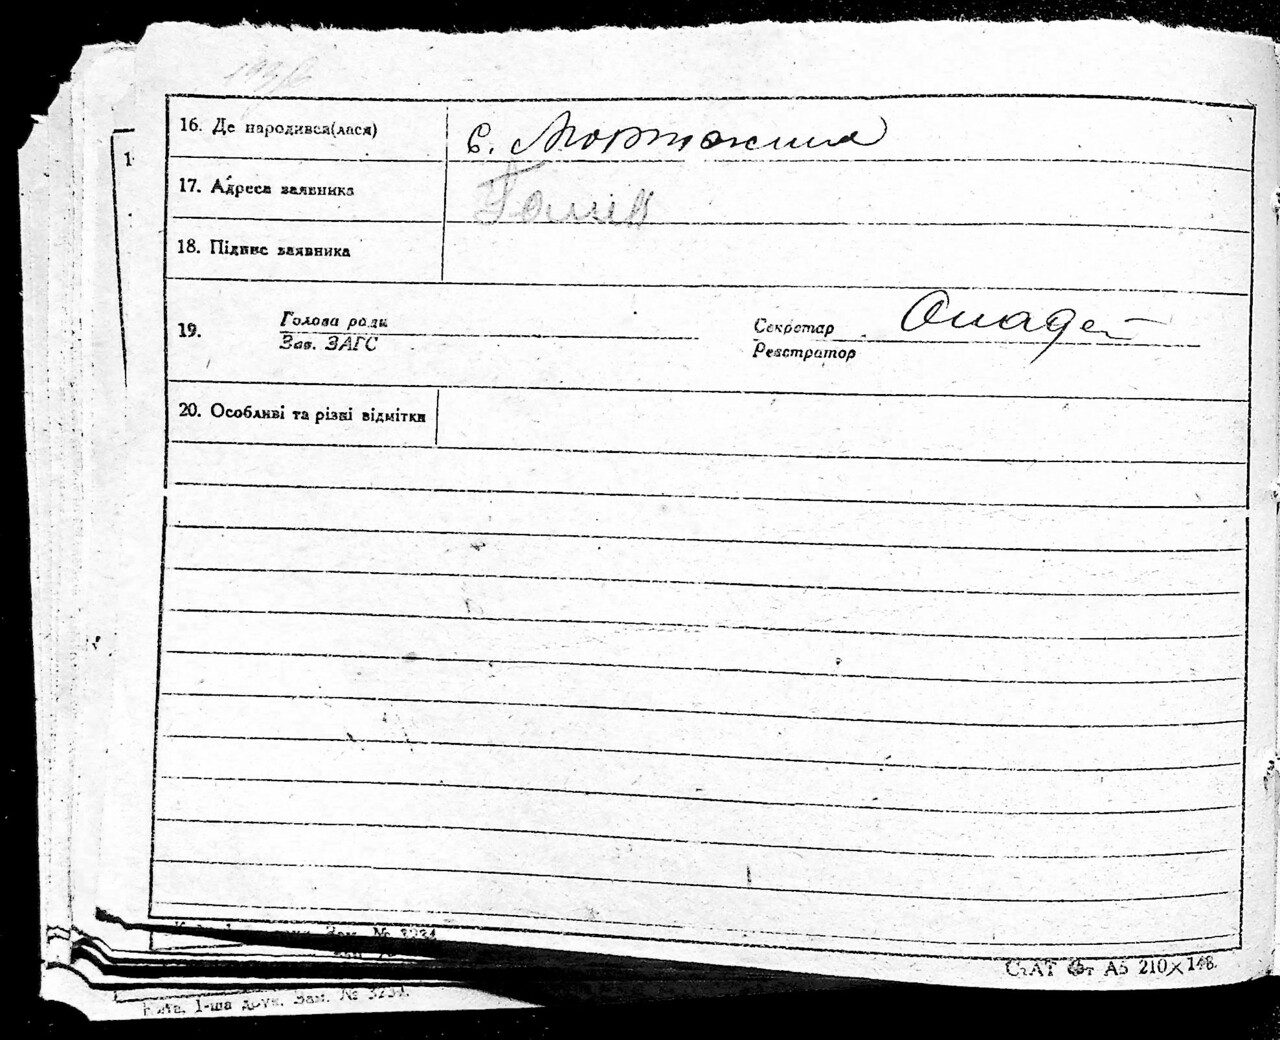 16. Де народився(лася) с. Мортжина
17. Адреса заявника
18. Підпис заявника
19. Голова ради
Зав. ЗАГС
Секретар
Реєстратор
20. Особливі та різні відмітки
Зам. № 3234
СтАТ Фт А5 210×148.
Київ, 1-ша друк. Зам. № 3234.